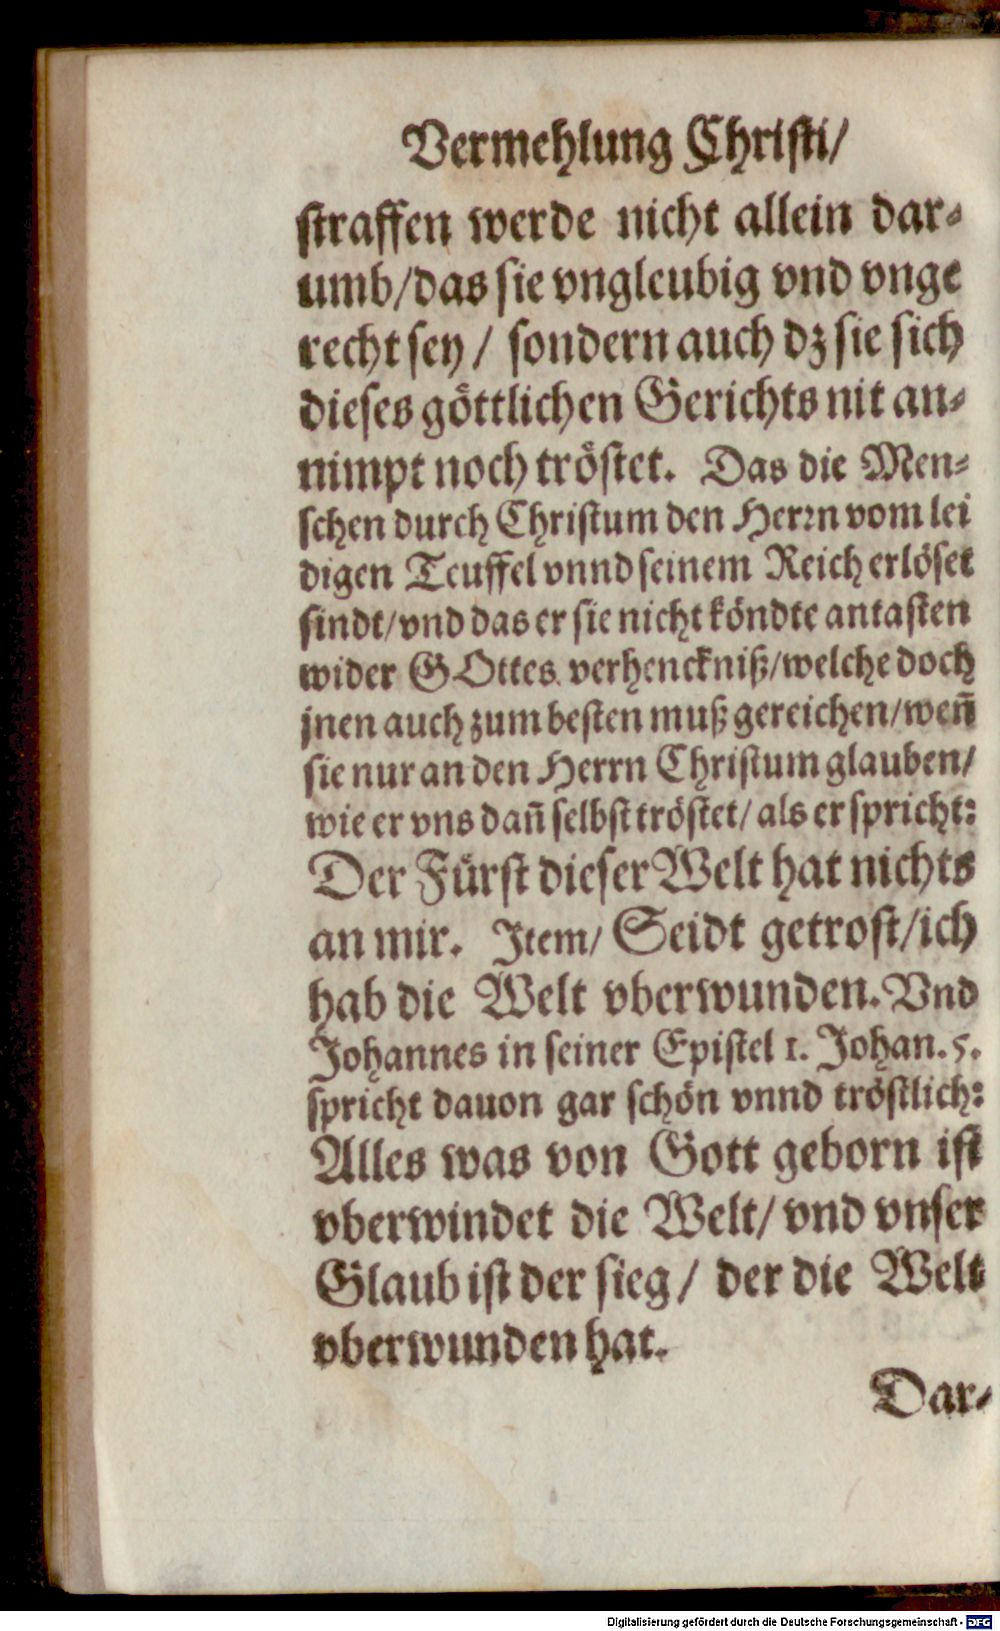 Vermehlung Christi/
straffen werde nicht allein dar-
umb/das sie vngleubig vnd vnge
recht sey / sondern auch dz sie sich
dieses göttlichen Gerichts nit an-
nimpt noch tröstet. Das die Men-
schen durch Christum den Herrn vom lei
digen Teuffel vnnd seinem Reich erlöset
sindt/vnd das er sie nicht köndte antasten
wider GOttes verhenckniß/welche doch
jnen auch zum besten muß gereichen/weñ
sie nur an den Herrn Christum glauben/
wie er vns dañ selbst tröstet/ als er spricht:
Der Fürst dieser Welt hat nichts
an mir. Item/ Seidt getrost/ich
hab die Welt vberwunden. Vnd
Johannes in seiner Epistel 1. Johan. 5.
spricht dauon gar schön vnnd tröstlich:
Alles was von Gott geborn ist
vberwindet die Welt/ vnd vnser
Glaub ist der sieg / der die Welt
vberwunden hat.
Dar-
Digitalisierung gefördert durch die Deutsche Forschungsgemeinschaft - DFG